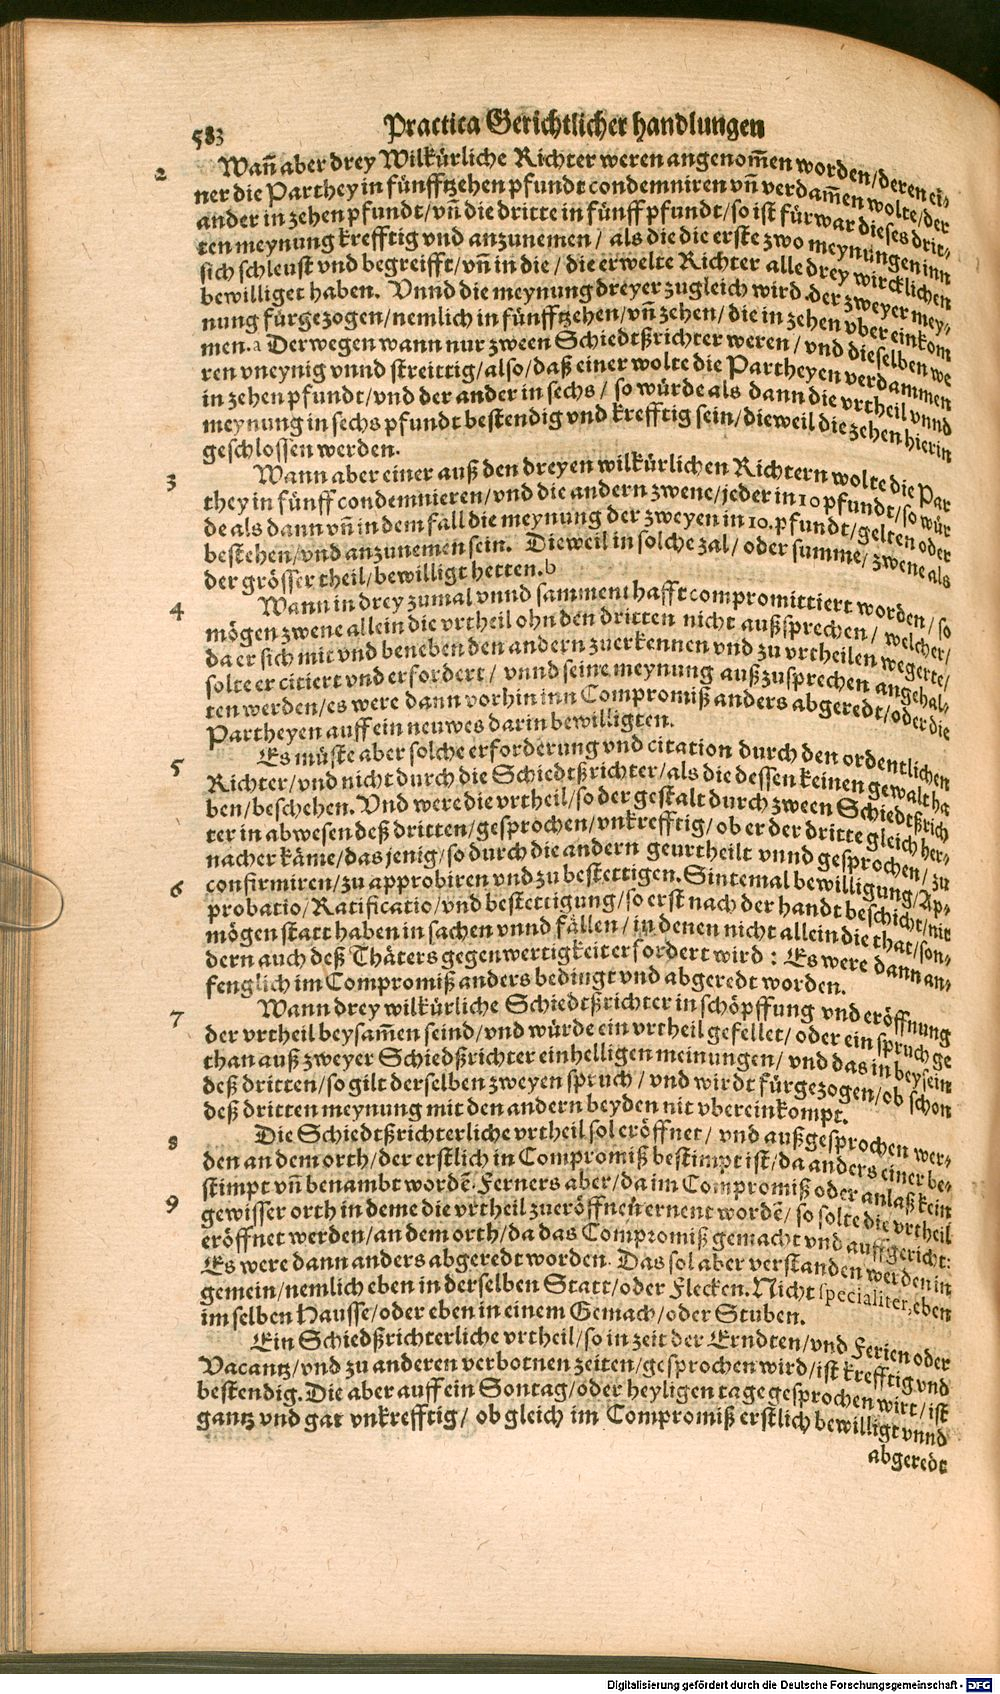 583 Practica Gerichtlicher handlungen
2 Wañ aber drey Wilkürliche Richter weren angenom̃en worden/deren ei-
ner die Parthey in fünfftzehen pfundt condemniren vñ verdam̃en wolte/der
ander in zehen pfundt/vñ die dritte in fünff pfundt/so ist fürwar dieses drit-
ten meynung krefftig vnd anzunemen/ als die die erste zwo meynungen inn
sich schleust vnd begreifft/vñ in die/die erwelte Richter alle drey wircklichen
bewilliget haben. Vnnd die meynung dreyer zugleich wird der zweyer mey-
nung fürgezogen/nemlich in fünfftzehen/vñ zehen/die in zehen vber einkom
men.a Derwegen wann nur zween Schiedtßrichter weren/ vnd dieselben we
ren vneynig vnnd streittig/also/daß einer wolte die Partheyen verdammen
in zehen pfundt/vnd der ander in sechs/ so würde als dann die vrtheil vnnd
meynung in sechs pfundt bestendig vnd krefftig sein/dieweil die zehen hierin
geschlossen werden.
3 Wann aber einer auß den dreyen wilkürlichen Richtern wolte die Par
they in fünff condemnieren/vnd die andern zwene/jeder in 10 pfundt/so wür
de als dann vñ in dem fall die meynung der zweyen in 10. pfundt/gelten oder
bestehen/vnd anzunemen sein. Dieweil in solche zal/ oder summe/ zwene als
der grösser theil/bewilligt hetten.b
4 Wann in drey zumal vnnd sammenthafft compromittiert worden/ so
mögen zwene allein die vrtheil ohn den dritten nicht außsprechen/ welcher/
da er sich mit vnd beneben den andern zuerkennen vnd zu vrtheilen wegerte/
solte er citiert vnd erfordert/ vnnd seine meynung auß zusprechen angehal-
ten werden/es were dann vorhin inn Compromiß anders abgeredt/oder die
Partheyen auff ein neuwes darin bewilligten.
5 Es müste aber solche erforderung vnd citation durch den ordentlichen
Richter/vnd nicht durch die Schiedtßrichter/als die dessen keinen gewalt ha
ben/beschehen. Vnd were die vrtheil/so der gestalt durch zween Schiedtßrich
ter in abwesen deß dritten/gesprochen/vnkrefftig/ ob er der dritte gleich her-
nacher käme/das jenig/so durch die andern geurtheilt vnnd gesprochen/ zu
6 confirmiren/zu approbiren vnd zu bestettigen. Sintemal bewilligung/Ap-
probatio/Ratificatio/vnd bestettigung/so erst nach der handt beschicht/nit
mögen statt haben in sachen vnnd fällen/ in denen nicht allein die that/son-
dern auch deß Thäters gegenwertigkeit erfordert wird: Es were dann an-
fenglich im Compromiß anders bedingt vnd abgeredt worden.
7 Wann drey wilkürliche Schiedtßrichter in schöpffung vnd eröffnung
der vrtheil beysam̃en seind/vnd würde ein vrtheil gefellet/ oder ein spruch ge
than auß zweyer Schiedßrichter einhelligen meinungen/ vnd das in beysein
deß dritten/so gilt derselben zweyen spruch/ vnd wirdt fürgezogen/ob schon
deß dritten meynung mit den andern beyden nit vbereinkompt.
8 Die Schiedtßrichterliche vrtheil sol eröffnet/ vnd außgesprochen wer-
den an dem orth/der erstlich in Compromiß bestimpt ist/da anders einer be-
stimpt vñ benambt wordẽ. Ferners aber/da im Compromiß oder anlaß kein
9 gewisser orth in deme die vrtheil zueröffnen ernent wordẽ/ so solte die vrtheil
eröffnet werden/an dem orth/da das Compromiß gemacht vnd auffgericht:
Es were dann anders abgeredt worden. Das sol aber verstanden werden in
gemein/nemlich eben in derselben Statt/oder Flecken. Nicht specialiter, eben
im selben Hausse/oder eben in einem Gemach/oder Stuben.
Ein Schiedßrichterliche vrtheil/so in zeit der Erndten/vnd Ferien oder
Vacantz/vnd zu anderen verbotnen zeiten/gesprochen wird/ist krefftig vnd
bestendig. Die aber auff ein Sontag/oder heyligen tage gesprochen wirt/ist
gantz vnd gar vnkrefftig/ ob gleich im Compromiß erstlich bewilligt vnnd
abgeredt
Digitalisierung gefördert durch die Deutsche Forschungsgemeinschaft - DFG